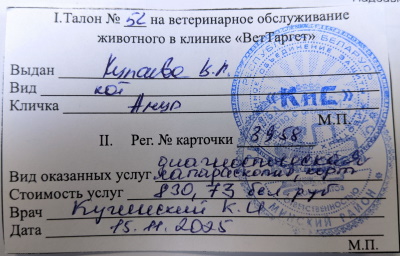 I.Талон № 52 на ветеринарное обслуживание
животного в клинике «ВетТаргет»
Выдан Купаева В.А.
Вид кот
Кличка Амур
М.П.
II. Рег. № карточки 3958
диагностическая
Вид оказанных услуг лапароскопия, корт
Стоимость услуг 830,73 бел.руб
Врач Кучинский К.И
Дата 15.11.2025
М.П.
«КиЕ»
РЕСПУБЛИКА БЕЛАРУСЬ